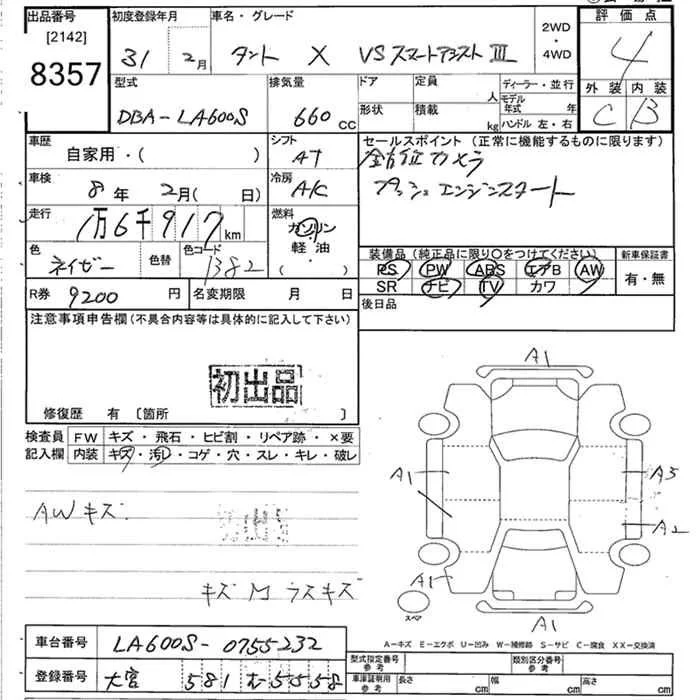 出品番号 [2142] 8357
初度登録年月 31年 2月
車名・グレード タント X VSスマートアシストⅢ
2WD・4WD
評価点 4
外装 内装
C B
型式 DBA-LA600S
排気量 660cc
ドア 形状
定員 人 積載 kg
ディーラー・並行
モデル年式 年
ハンドル 左・右
車歴 自家用・( )
シフト AT
セールスポイント(正常に機能するものに限ります)
全方位カメラ
プッシュエンジンスタート
車検 8年 2月( 日)
冷房 A/C
走行 1万6千917km
燃料 ガソリン 軽油・( )
色 ネイビー 色替 色コード
装備品(純正品に限り○をつけてください) 新車保証書
PS PW ABS エアB AW
SR ナビ TV カワ
有・無
R券 9200円 名変期限 月 日
後日品
注意事項申告欄(不具合内容等は具体的に記入して下さい)
初出品
修復歴 有 [箇所 ]
検査員 FW キズ・飛石・ヒビ割・リペア跡・×要
記入欄 内装 キズ・汚れ・コゲ・穴・スレ・キレ・破レ
A1
A1 A3
A2
A1
スペア
A1
AWキズ
初出品
キズM ラスキズ
A-キズ E-エクボ U-凹み W-補修跡 S-サビ C-腐食 XX-交換済
車台番号 LA600S-0755232
型式指定番号 参考 類別区分番号 参考
登録番号 大宮 581 5558
車庫証明用 参考 長さ cm 幅 cm 高さ cm